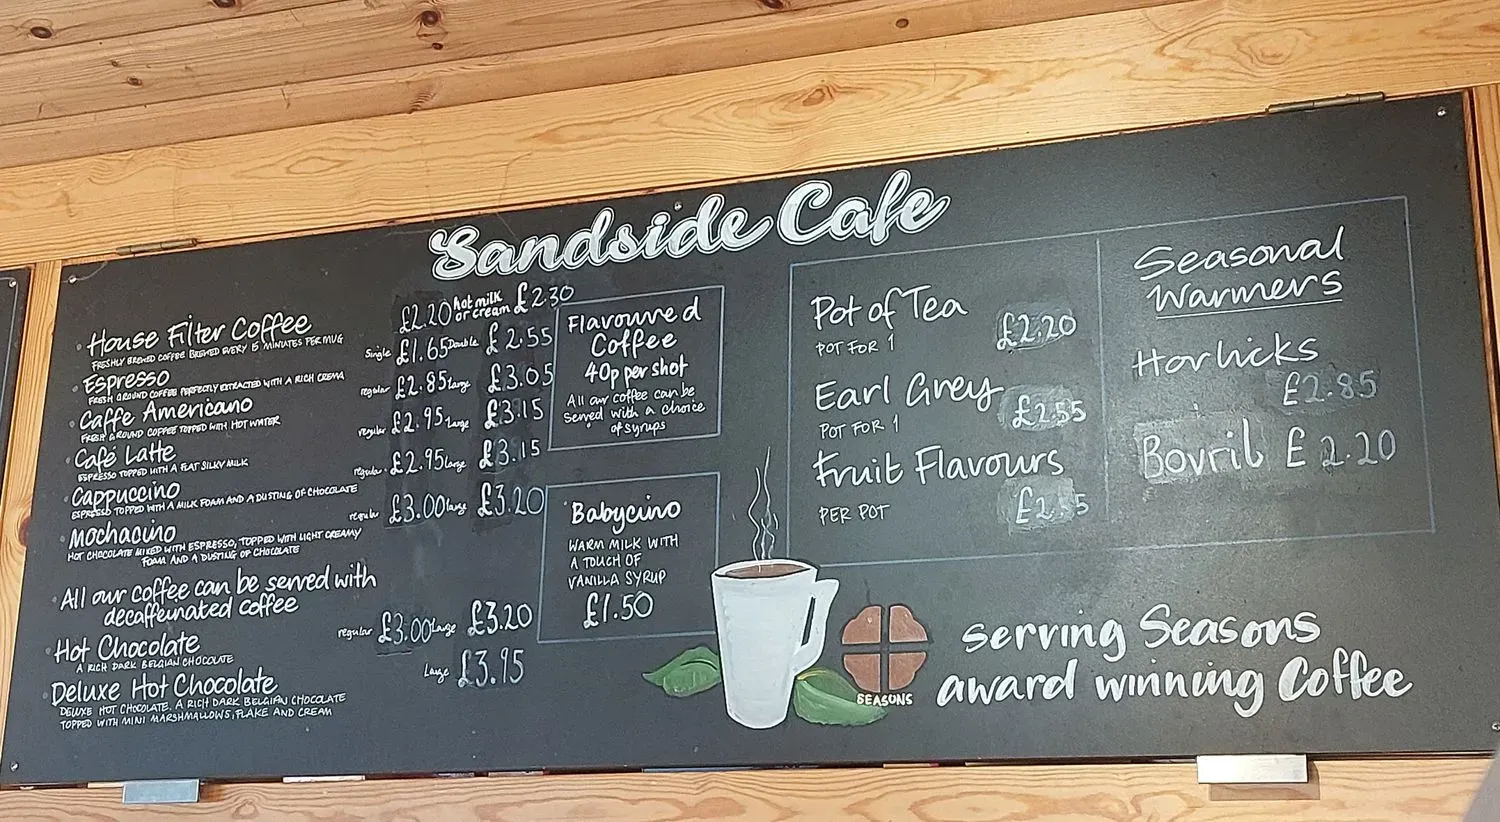 Sandside Cafe
House Filter Coffee £2.20 hot milk or cream £2.30
FRESHLY BREWED COFFEE BREWED EVERY 15 MINUTES PER MUG
Espresso Single £1.65 Double £2.55
FRESH GROUND COFFEE PERFECTLY EXTRACTED WITH A RICH CREMA
Caffe Americano regular £2.85 Large £3.05
FRESH GROUND COFFEE TOPPED WITH HOT WATER
Café Latte regular £2.95 Large £3.15
ESPRESSO TOPPED WITH A FLAT SILKY MILK
Cappuccino regular £2.95 Large £3.15
ESPRESSO TOPPED WITH A MILK FOAM AND A DUSTING OF CHOCOLATE
Mochacino regular £3.00 Large £3.20
HOT CHOCOLATE MIXED WITH ESPRESSO, TOPPED WITH LIGHT CREAMY
FOAM AND A DUSTING OF CHOCOLATE
All our coffee can be served with
decaffeinated coffee
Hot Chocolate regular £3.00 Large £3.20
A RICH DARK BELGIAN CHOCOLATE
Deluxe Hot Chocolate Large £3.95
DELUXE HOT CHOCOLATE, A RICH DARK BELGIAN CHOCOLATE
TOPPED WITH MINI MARSHMALLOWS, FLAKE AND CREAM
Flavoured
Coffee
40p per shot
All our coffee can be
served with a choice
of syrups
Babycino
WARM MILK WITH
A TOUCH OF
VANILLA SYRUP
£1.50
Pot of Tea
POT FOR 1 £2.20
Earl Grey
POT FOR 1 £2.55
Fruit Flavours
PER POT
Seasonal
Warmers
Horlicks
£2.85
Bovril £2.20
SEASONS
serving Seasons
award winning Coffee